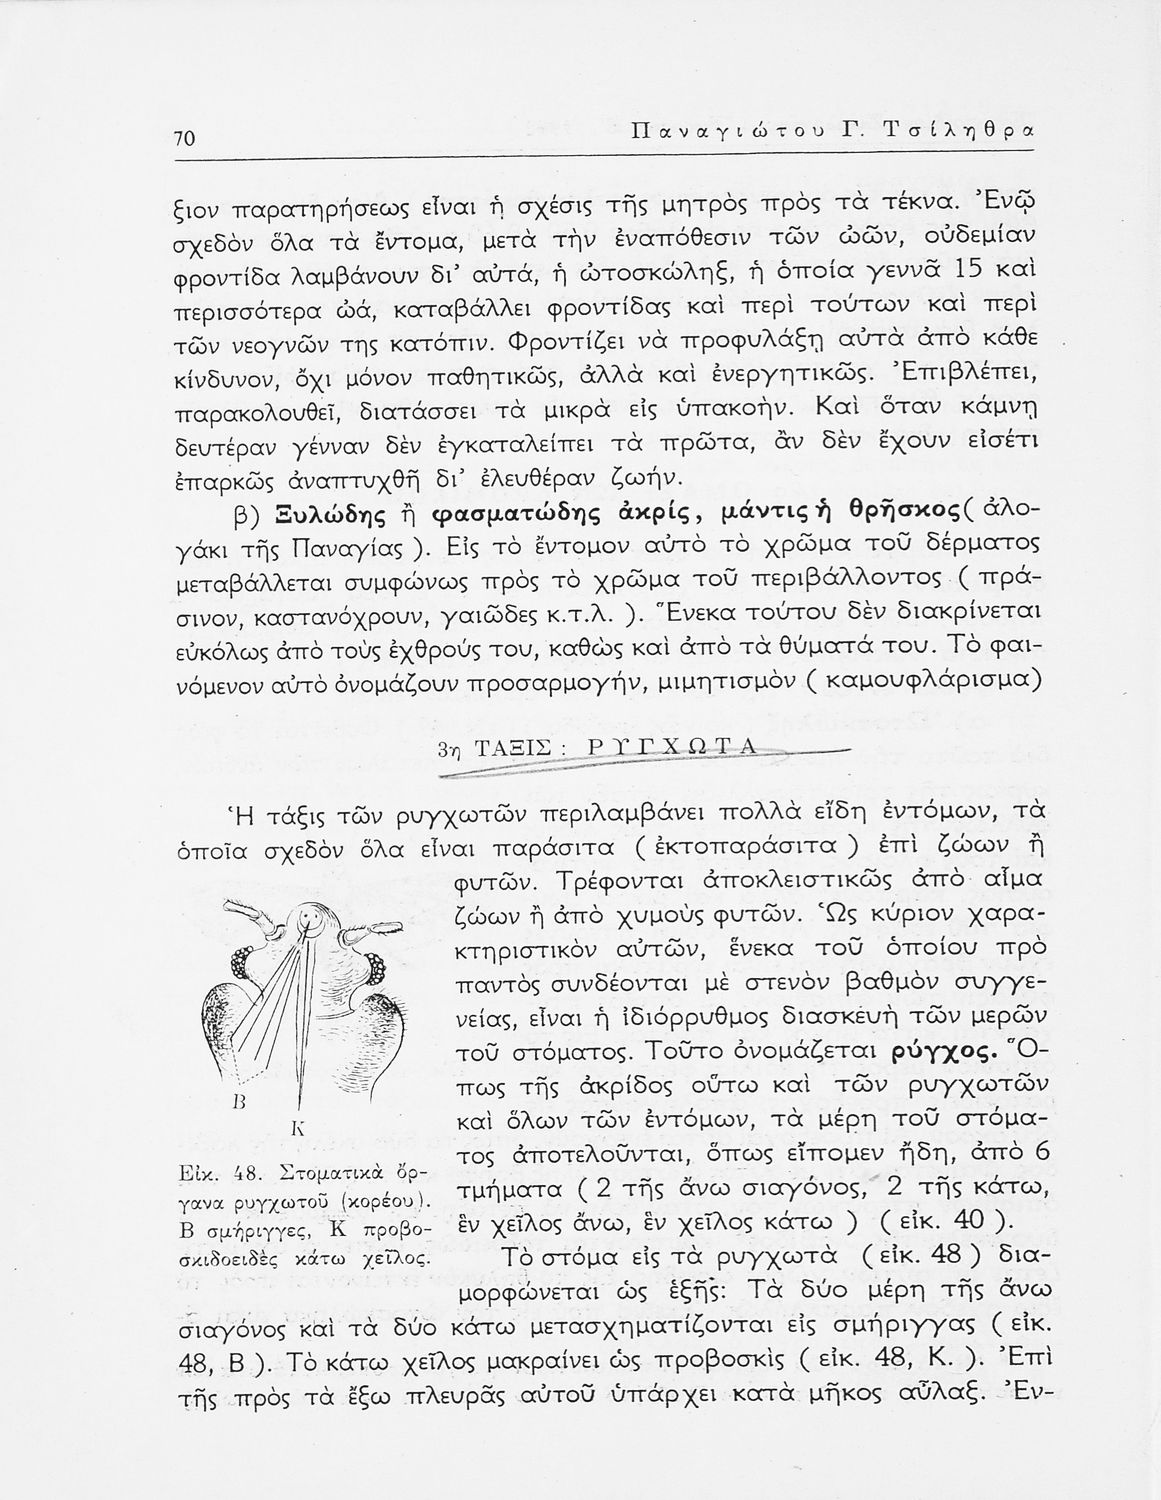 70
Παναγιώτου Γ. Τσίληθρα
ξιον παρατηρήσεως εἶναι ἡ σχέσις τῆς μητρὸς πρὸς τὰ τέκνα. Ἐνῷ
σχεδὸν ὅλα τὰ ἔντομα, μετὰ τὴν ἐναπόθεσιν τῶν ὠῶν, οὐδεμίαν
φροντίδα λαμβάνουν δι' αὐτά, ἡ ὠτοσκώληξ, ἡ ὁποία γεννᾶ 15 καὶ
περισσότερα ὠά, καταβάλλει φροντίδας καὶ περὶ τούτων καὶ περὶ
τῶν νεογνῶν της κατόπιν. Φροντίζει νὰ προφυλάξῃ αὐτὰ ἀπὸ κάθε
κίνδυνον, ὄχι μόνον παθητικῶς, ἀλλὰ καὶ ἐνεργητικῶς. Ἐπιβλέπει,
παρακολουθεῖ, διατάσσει τὰ μικρὰ εἰς ὑπακοὴν. Καὶ ὅταν κάμνῃ
δευτέραν γένναν δὲν ἐγκαταλείπει τὰ πρῶτα, ἂν δὲν ἔχουν εἰσέτι
ἐπαρκῶς ἀναπτυχθῆ δι' ἐλευθέραν ζωήν.
β) Ξυλώδης ἢ φασματώδης ἀκρίς, μάντις ἡ θρῆσκος( ἀλο-
γάκι τῆς Παναγίας ). Εἰς τὸ ἔντομον αὐτὸ τὸ χρῶμα τοῦ δέρματος
μεταβάλλεται συμφώνως πρὸς τὸ χρῶμα τοῦ περιβάλλοντος ( πρά-
σινον, καστανόχρουν, γαιῶδες κ.τ.λ. ). Ἕνεκα τούτου δὲν διακρίνεται
εὐκόλως ἀπὸ τοὺς ἐχθρούς του, καθὼς καὶ ἀπὸ τὰ θύματά του. Τὸ φαι-
νόμενον αὐτὸ ὀνομάζουν προσαρμογήν, μιμητισμὸν ( καμουφλάρισμα)
3η ΤΑΞΙΣ : ΡΥΓΧΩΤΑ
Ἡ τάξις τῶν ρυγχωτῶν περιλαμβάνει πολλὰ εἴδη ἐντόμων, τὰ
ὁποῖα σχεδὸν ὅλα εἶναι παράσιτα ( ἐκτοπαράσιτα ) ἐπὶ ζώων ἢ
φυτῶν. Τρέφονται ἀποκλειστικῶς ἀπὸ αἷμα
ζώων ἢ ἀπὸ χυμοὺς φυτῶν. Ὡς κύριον χαρα-
κτηριστικὸν αὐτῶν, ἕνεκα τοῦ ὁποίου πρὸ
παντὸς συνδέονται μὲ στενὸν βαθμὸν συγγε-
νείας, εἶναι ἡ ἰδιόρρυθμος διασκευὴ τῶν μερῶν
τοῦ στόματος. Τοῦτο ὀνομάζεται ρύγχος. Ὅ-
πως τῆς ἀκρίδος οὕτω καὶ τῶν ρυγχωτῶν
καὶ ὅλων τῶν ἐντόμων, τὰ μέρη τοῦ στόμα-
τος ἀποτελοῦνται, ὅπως εἴπομεν ἤδη, ἀπὸ 6
τμήματα ( 2 τῆς ἄνω σιαγόνος, 2 τῆς κάτω,
ἓν χεῖλος ἄνω, ἓν χεῖλος κάτω ) ( εἰκ. 40 ).
Β
Κ
Εἰκ. 48. Στοματικὰ ὄρ-
γανα ρυγχωτοῦ (κορέου).
Β σμήριγγες, Κ προβο-
σκιδοειδὲς κάτω χεῖλος.
Τὸ στόμα εἰς τὰ ρυγχωτὰ ( εἰκ. 48 ) δια-
μορφώνεται ὡς ἑξῆς: Τὰ δύο μέρη τῆς ἄνω
σιαγόνος καὶ τὰ δύο κάτω μετασχηματίζονται εἰς σμήριγγας ( εἰκ.
48, Β ). Τὸ κάτω χεῖλος μακραίνει ὡς προβοσκὶς ( εἰκ. 48, Κ. ). Ἐπὶ
τῆς πρὸς τὰ ἔξω πλευρᾶς αὐτοῦ ὑπάρχει κατὰ μῆκος αὖλαξ. Ἐν-